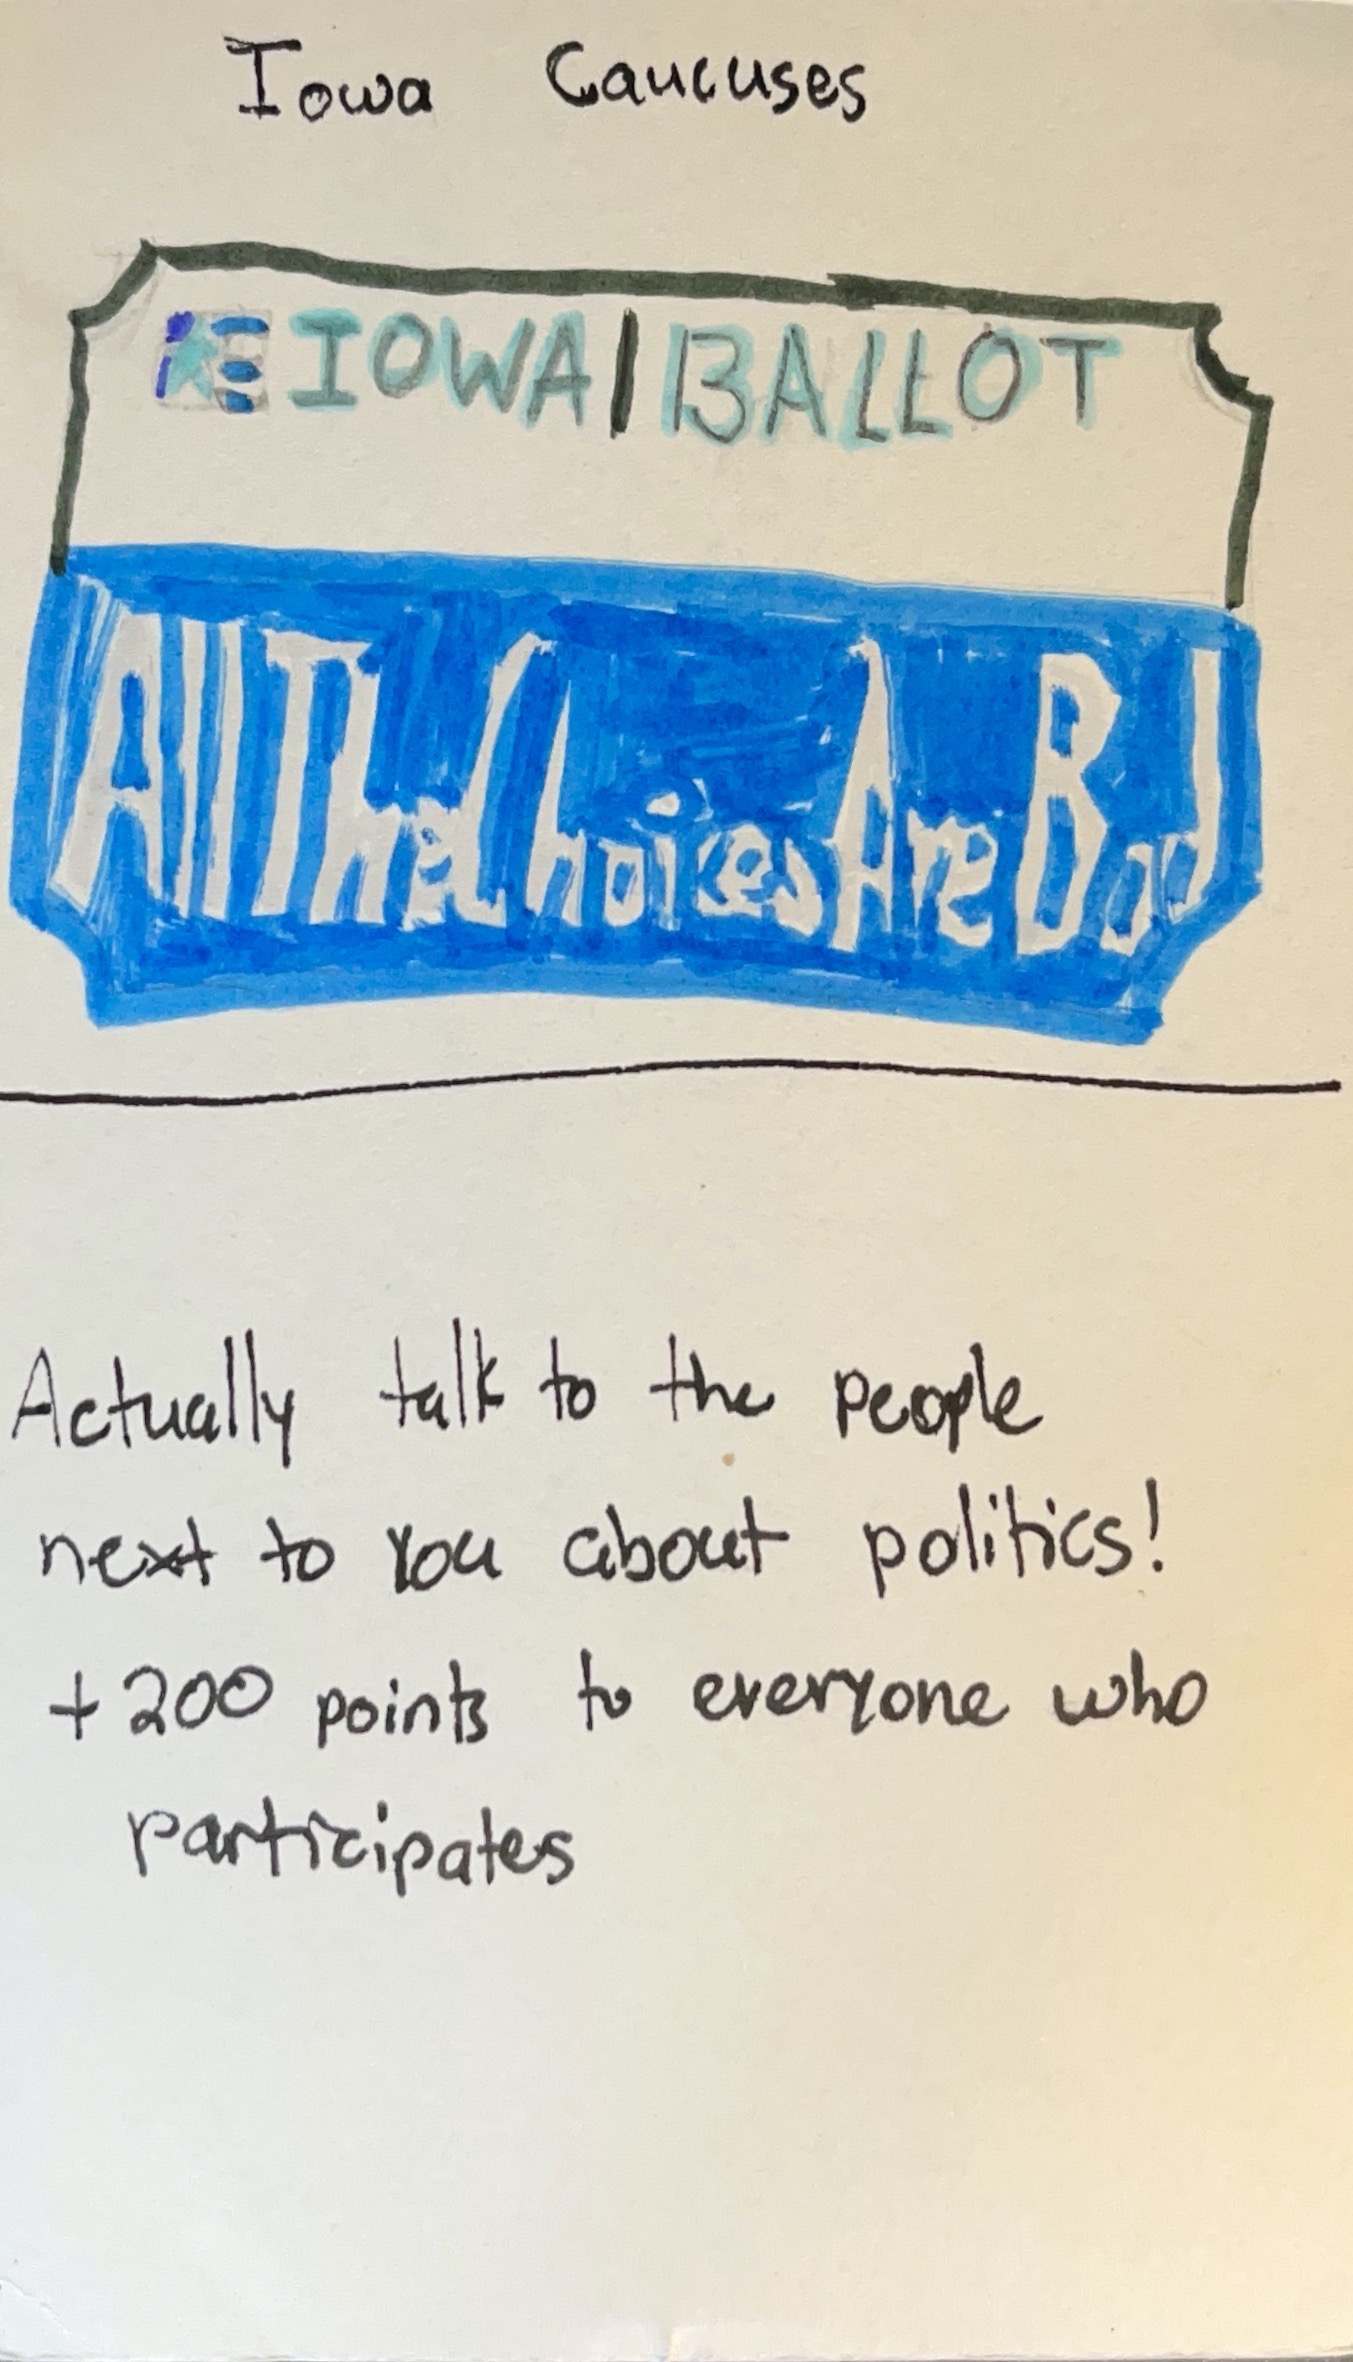 Iowa Caucuses
IOWA | BALLOT
All The Choices Are Bad
Actually talk to the people
next to you about politics!
+200 points to everyone who
participates